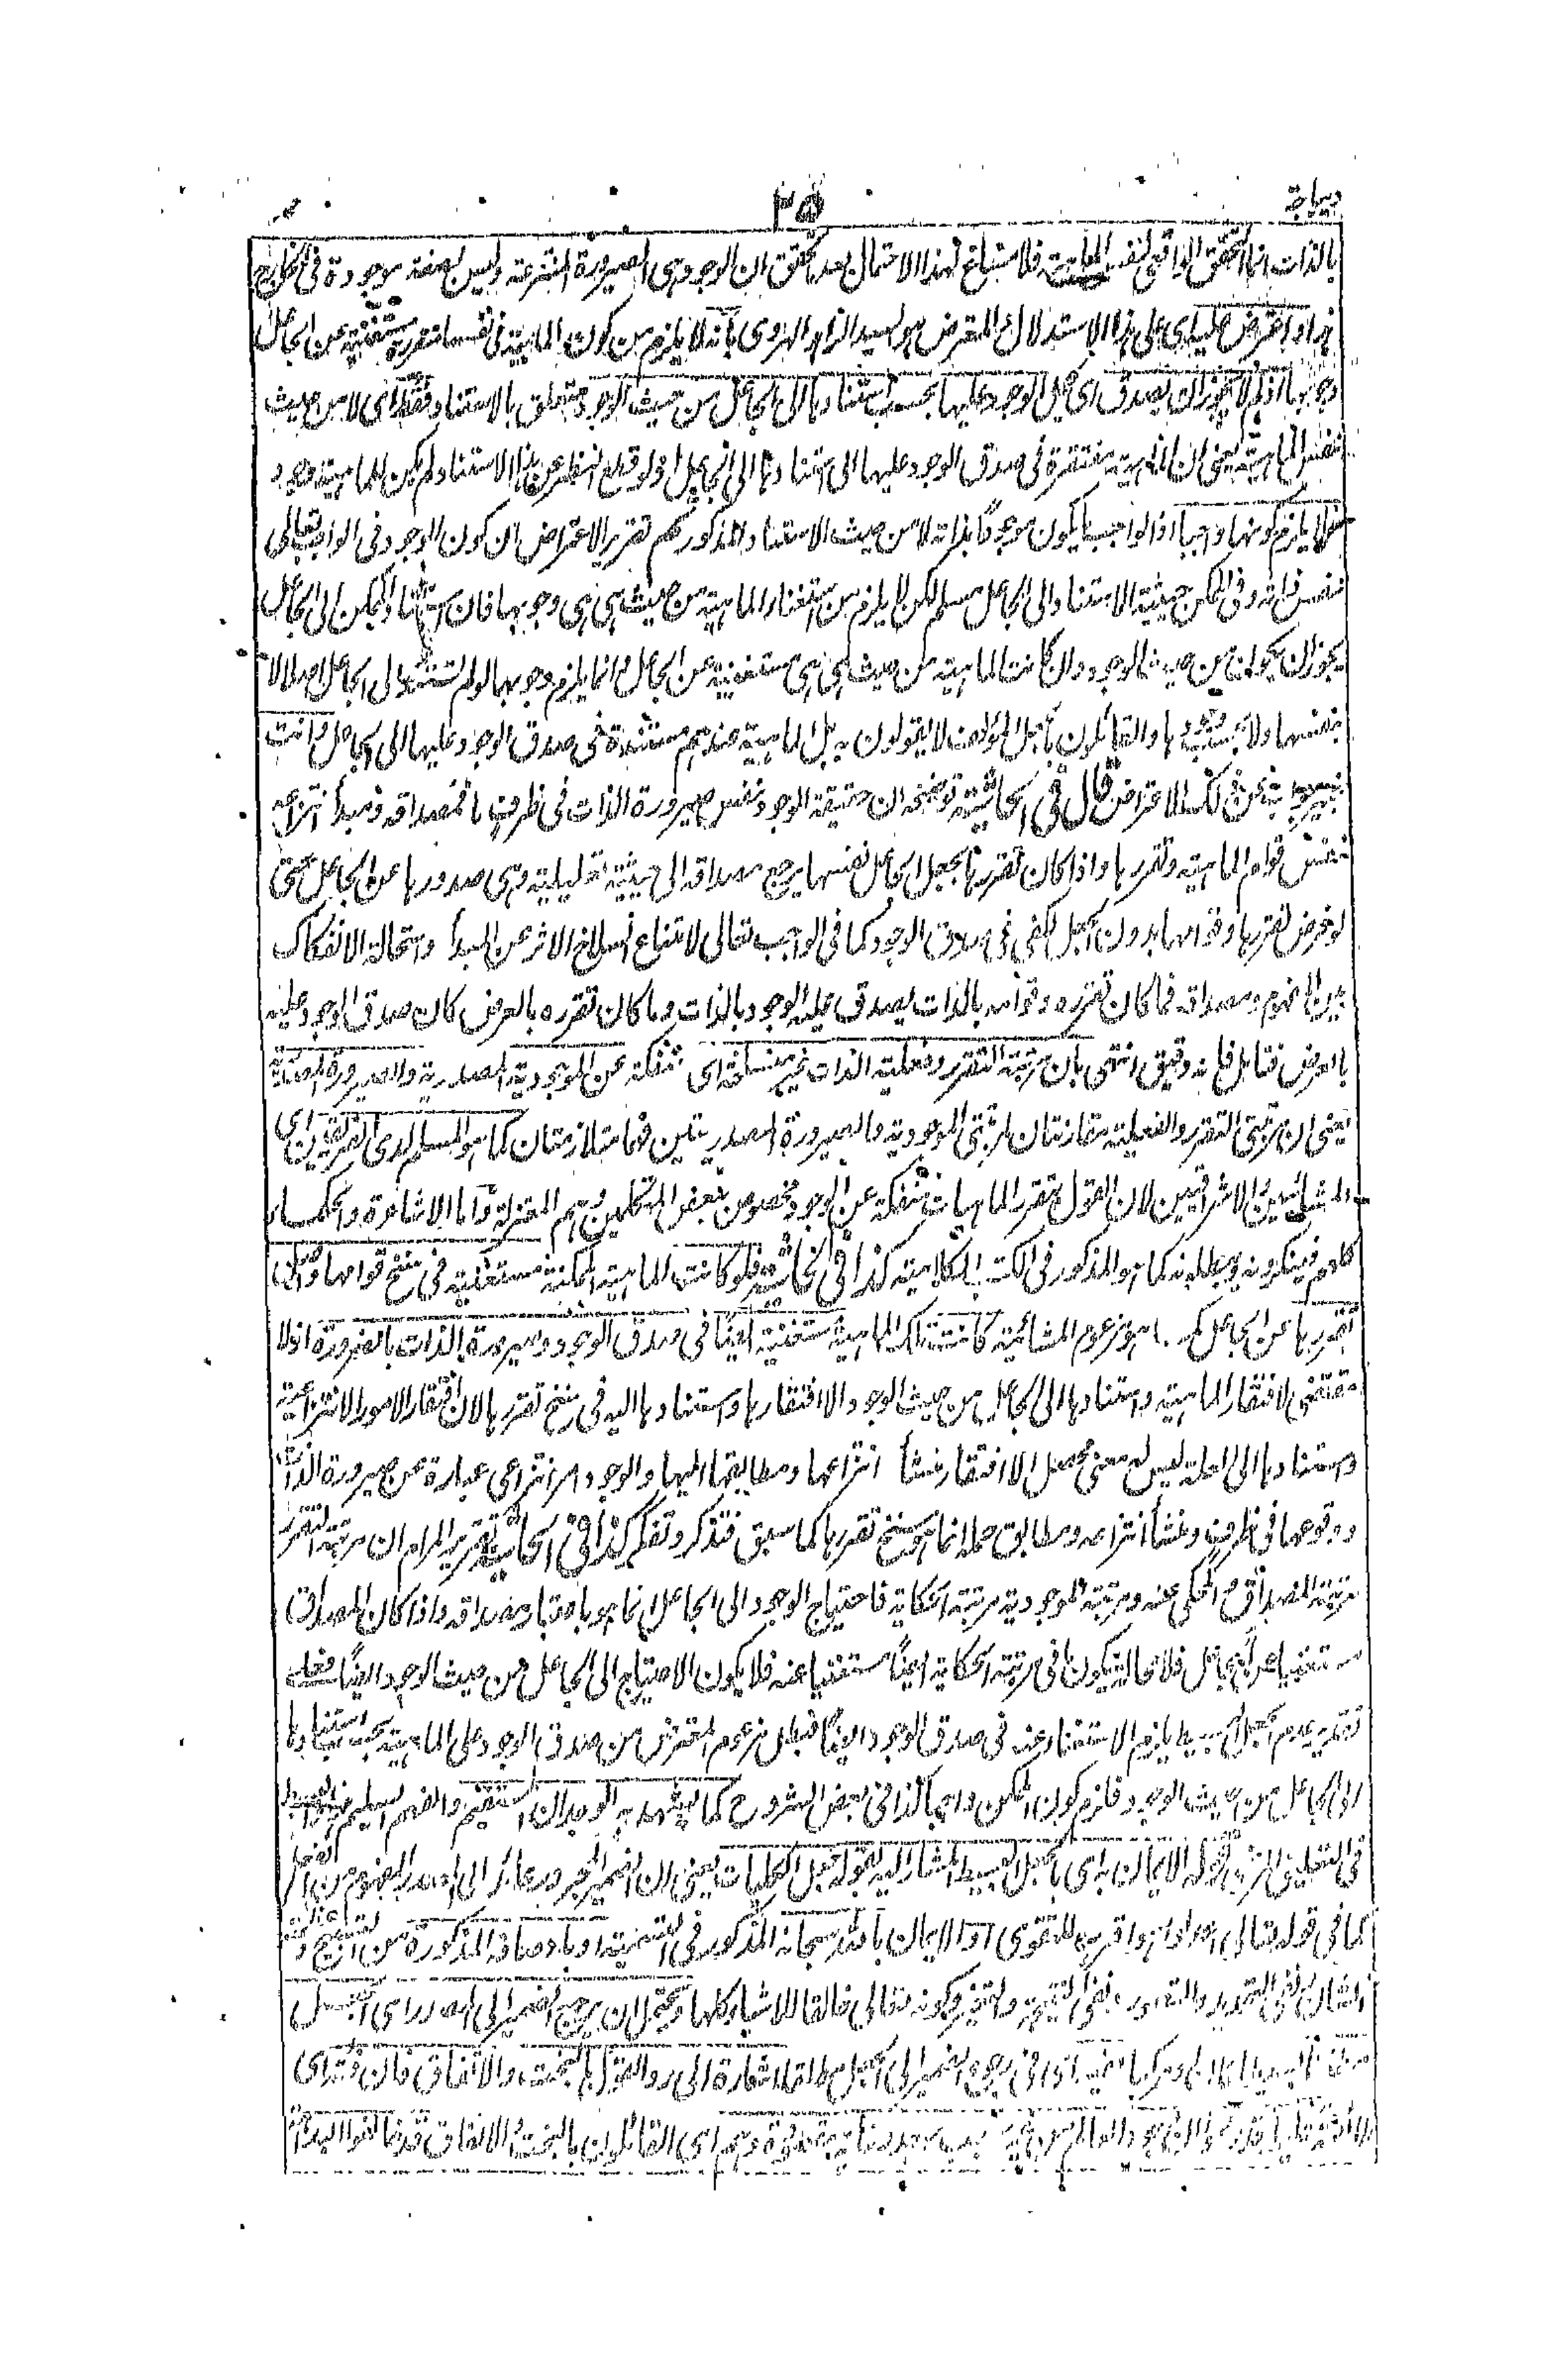 ديباجة
٢٥
بالذات انما التحقق الواقعي لنفس الماهية فلا مساغ لهذا الاحتمال بعد تحقق ان الوجود هى الصيرورة المنتزعة وليس بصفة موجودة فى الخارج
هذا واعترض عليه اى على هذا الاستدلال المعترض هو السيد الزاهد الهروى بأنه لا يلزم من كون الماهية فى نفسها متقررة مستغنية عن الجاعل
وجوبها اذ لم لا يجوز ان يصدق اى حمل الوجود عليها بحسب استنادها الى الجاعل من حيث الوجود متعلق بالاستناد فقط اى لا من حيث
نفس الماهية يعنى ان الماهية مفتقرة فى صدق الوجود عليها الى استنادها الى الجاعل اذ لو قطع النظر عن هذا الاستناد لم يكن للماهية وجود
فلا يلزم كونها واجبا اذ الواجب ما يكون موجودًا بذاته لا من حيث الاستناد المذكور ثم تقرير الاعتراض ان كون الوجود فى الواجب تعالى
نفس ذاته وفى الممكن حيثية الاستناد الى الجاعل مسلم لكن لا يلزم من استغناء الماهية من حيث هى هى وجوبها فان استناد الممكن الى الجاعل
يجوز ان يكون من حيث الوجود وان كانت الماهية من حيث هى هى مستغنية عن الجاعل وانما يلزم وجوبها لو لم تستند الى الجاعل اصلا لا
بنفسها ولا بحسب وجودها والقائلون بالجعل المؤلف لا يقولون به بل الماهية عندهم مستندة فى صدق الوجود عليها الى الجاعل وانت
خبير بما فيه من ذلك الاعتراض قال فى الحاشية توضيحه ان حقيقة الوجود نفس صيرورة الذات فى ظرف ما فمصداقه ومبدأ انتزاعه
نفس قوام الماهية وتقررها واذا كان تقررها بجعل الجاعل نفسها يرجع مصداقه الى حيثية تعليلية وهى صدورها عن الجاعل حتى
لو فرض تقررها وقوامها بدون الجعل لكفى فى صدق الوجود كما فى الواجب تعالى لامتناع انسلاخ الاثر عن المبدأ واستحالة الانفكاك
بين المفهوم ومصداقه فما كان تقرره وقوامه بالذات يصدق عليه الوجود بالذات وما كان تقرره بالعرض كان صدق الوجود عليه
بالعرض فتأمل فانه دقيق انتهى بان مرتبة التقرر وفعلية الذات غير منسلخة اى منفكة عن الموجودية المصدرية والصيرورة المصدرية
يعنى ان مرتبتى التقرر والفعلية مقارنتان لمرتبتى الموجودية والصيرورة المصدريتين فهما متلازمتان كما هو المسلم لدى الفريقين اى
المشائيين والاشراقيين لان القول بتقرر الماهيات منفكة عن الوجود مخصوص ببعض المتكلمين وهم المعتزلة واما الاشاعرة والحكماء
كلهم فينكرونه ويبطلونه كما هو المذكور فى الكتب الكلامية كذا فى الحاشية فلو كانت الماهية الممكنة مستغنية فى سنخ قوامها واصل
تقررها عن الجاعل كما هو مزعوم المشائية كانت تلك الماهية مستغنية ايضًا فى صدق الوجود وصيرورة الذات بالضرورة اذ لا
مقتضى لافتقار الماهية واستنادها الى الجاعل من حيث الوجود الا افتقارها واستنادها اليه فى سنخ تقررها لان افتقار الامور الانتزاعية
واستنادها الى العلة ليس له معنى محصل الا افتقار منشأ انتزاعها ومطابقها اليها والوجود امر انتزاعى عبارة عن صيرورة الذات
ووقوعها فى ظرف ومنشأ انتزاعه ومطابق حمله انما هو سنخ تقررها كما سبق فتذكر وتفكر كذا فى الحاشية تقرير المرام ان مرتبة التقرر
مرتبة المصداق المحكى عنه ومرتبة الموجودية مرتبة الحكاية فاحتياج الوجود الى الجاعل انما هو باعتبار مصداقه واذا كان المصداق
مستغنيا عن الجاعل فلا محالة يكون ما فى مرتبة الحكاية ايضًا مستغنيا عنه فلا يكون الاحتياج الى الجاعل من حيث الوجود ايضًا فعلى
تقدير عدم الجعل البسيط يلزم الاستغناء عنه فى صدق الوجود ايضًا فبطل مزعوم المعترض من صدق الوجود على الماهية بحسب استنادها
الى الجاعل من حيث الوجود فلزم كون الممكن واجبا كذا فى بعض الشروح كما يشهد به الوجدان المستقيم والفهم السليم
فى التعليق قوله الايمان به اى بالجعل البسيط المشار اليه بقوله جعل الكليات يعنى ان الضمير المجرور عائد الى المصدر المفهوم من الفعل
كما فى قوله تعالى اعدلوا هو اقرب للتقوى او الايمان بالله سبحانه المذكور فى التسمية او باوصافه المذكورة من
ونفى التحديد والتصور وكونه تعالى خالقا للاشياء كلها ويحتمل ان يرجع الضمير الى المصدر اى الجعل
اى فى رجوع الضمير الى الجعل مطلقا اشارة الى رد القول بالبخت والاتفاق فان
اى القائلون بالبخت والاتفاق قد خالفوا البداهة